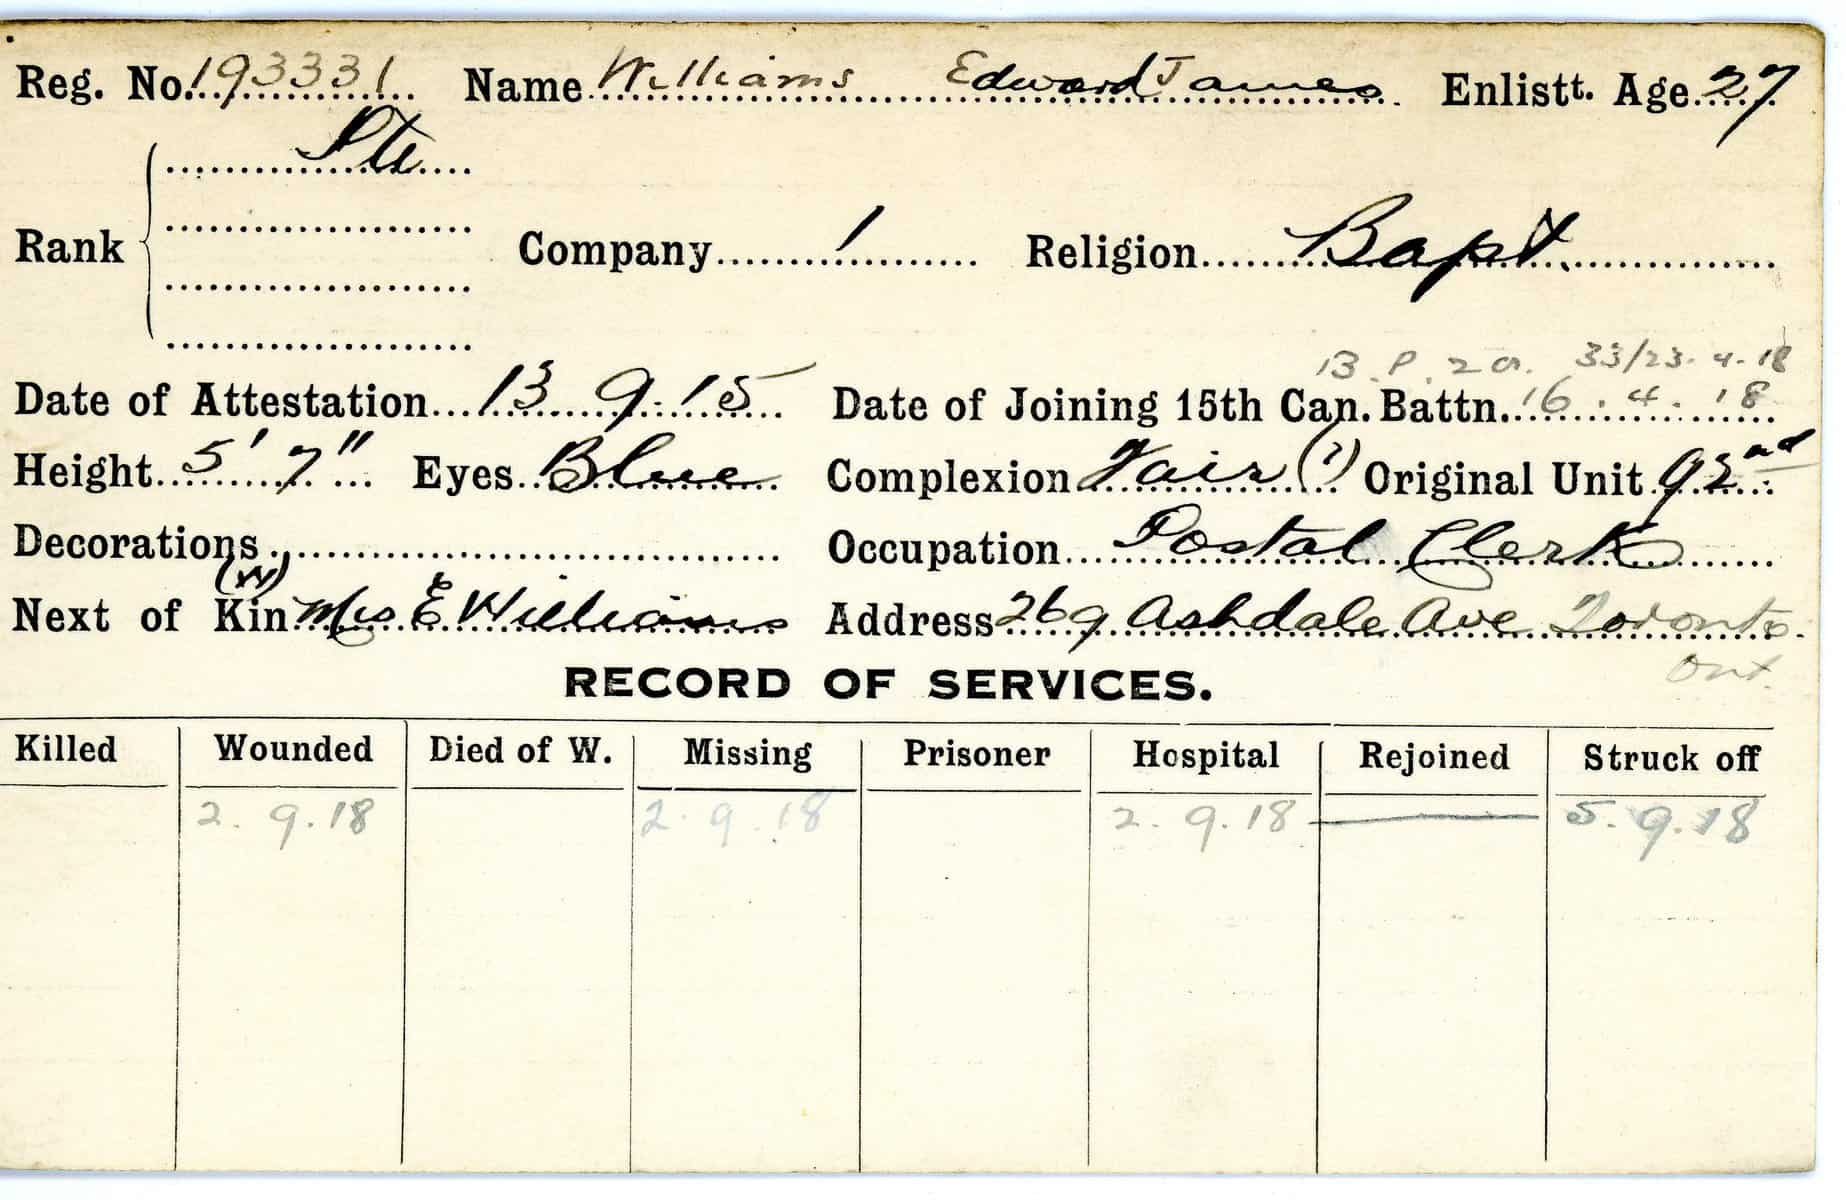 Reg. No. 193331 Name Williams Edward James Enlistt. Age 27
Pte
Rank Company 1 Religion Bapt.
B.P. 2a. 33/23.4.18
Date of Attestation 13.9.15 Date of Joining 15th Can. Battn. 16.4.18
Height 5' 7" Eyes Blue Complexion Fair (?) Original Unit 92nd
Decorations Occupation Postal Clerk
(W)
Next of Kin Mrs. E Williams Address 269 Ashdale Ave Toronto.
Ont.
RECORD OF SERVICES.
Killed Wounded Died of W. Missing Prisoner Hospital Rejoined Struck off
2.9.18 2.9.18 2.9.18 — 5.9.18